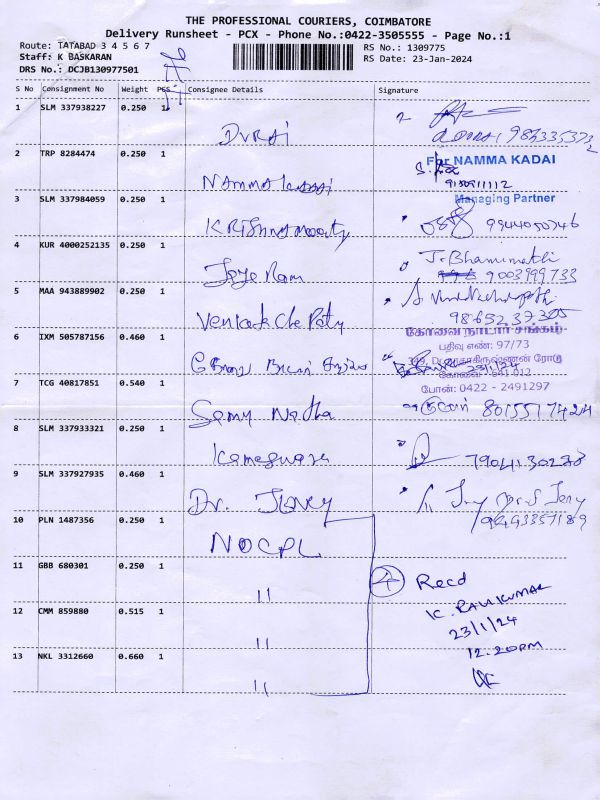 THE PROFESSIONAL COURIERS, COIMBATORE
Delivery Runsheet - PCX - Phone No.:0422-3505555 - Page No.:1
Route: TATABAD 3 4 5 6 7
RS No.: 1309775
Staff: K BASKARAN
RS Date: 23-Jan-2024
DRS No.: DCJB130977501
S No Consignment No Weight PCS Consignee Details Signature
1 SLM 337938227 0.250 1
DURAI
2 TRP 8284474 0.250 1
For NAMMA KADAI
9150911112
NAMMA KADAI
Managing Partner
3 SLM 337984059 0.250 1
KRISHNAMOORTY
4 KUR 4000252135 0.250 1
J. Bhanumathi
9003999733
Jaye Ram
5 MAA 943889902 0.250 1
9865237325
6 IXM 505787156 0.460 1
கோவை நாடார் சங்கம்
பதிவு எண்: 97/73
கோவை - 641 012
7 TCG 40817851 0.540 1
போன்: 0422 - 2491297
Samy Natha
8 SLM 337933321 0.250 1
Kameswara
9 SLM 337927935 0.460 1
Dr. Jerry
10 PLN 1487356 0.250 1
NOCPL
11 GBB 680301 0.250 1
"
4 Recd
K. RAVIKUMAR
12 CMM 859880 0.515 1
23/1/24
"
12.20PM
13 NKL 3312660 0.660 1
"